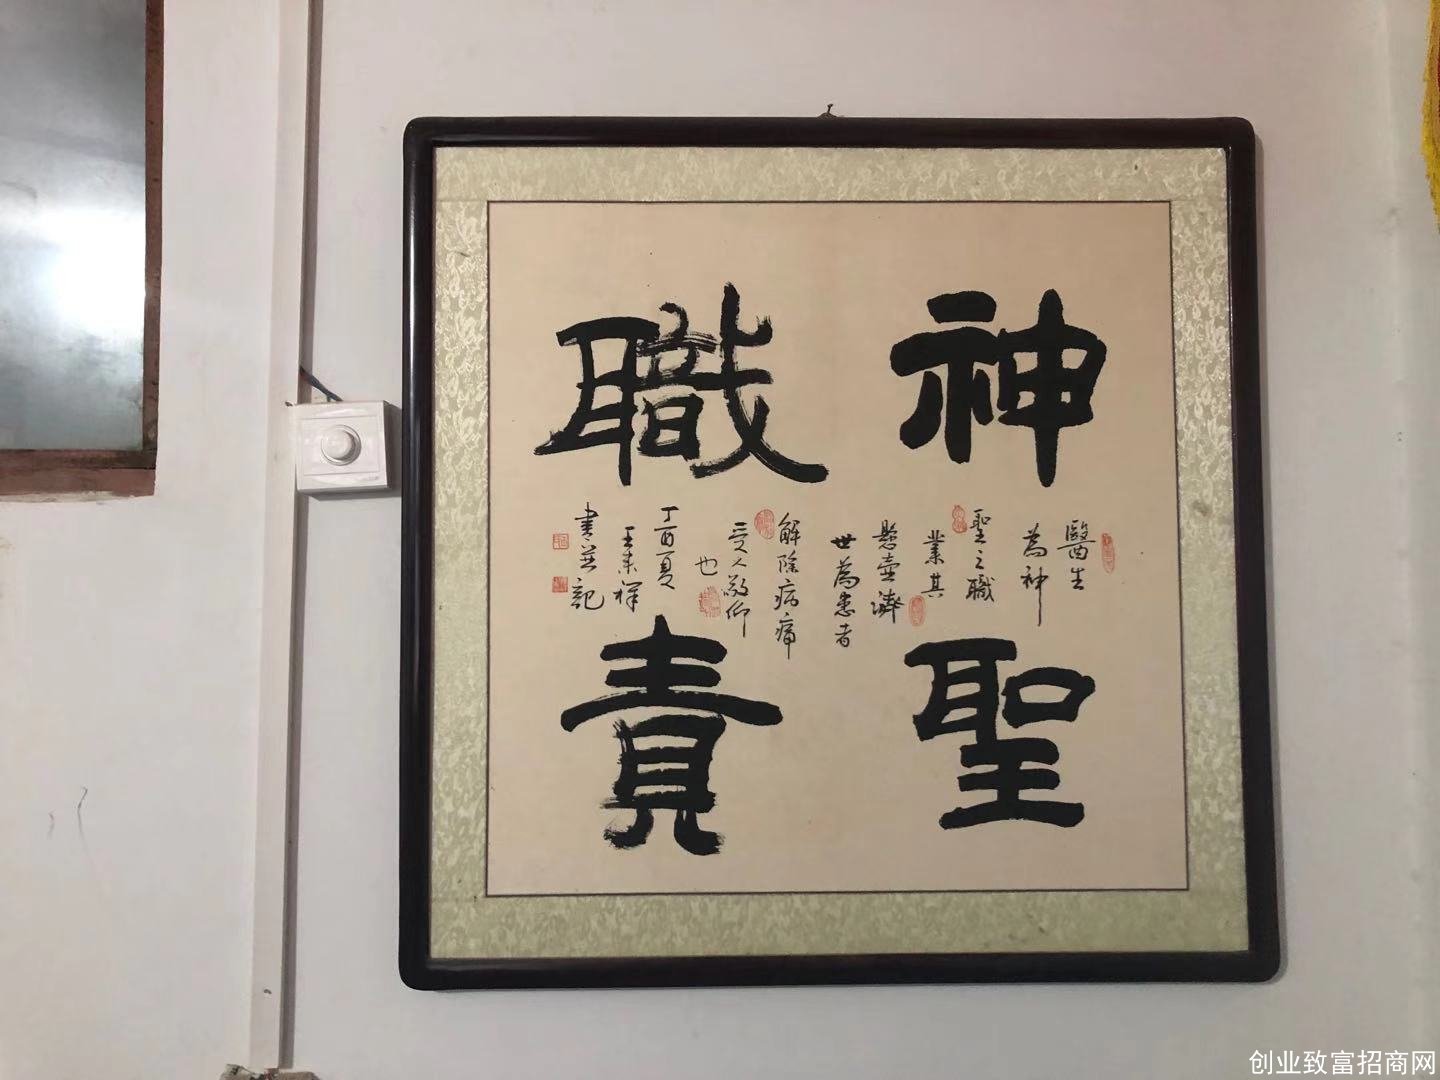 神聖
職責
醫生
為神
聖之職
業其
懸壺濟
世為患者
解除病痛
受人敬仰
也
丁酉夏
王来祥
書並記
创业致富招商网